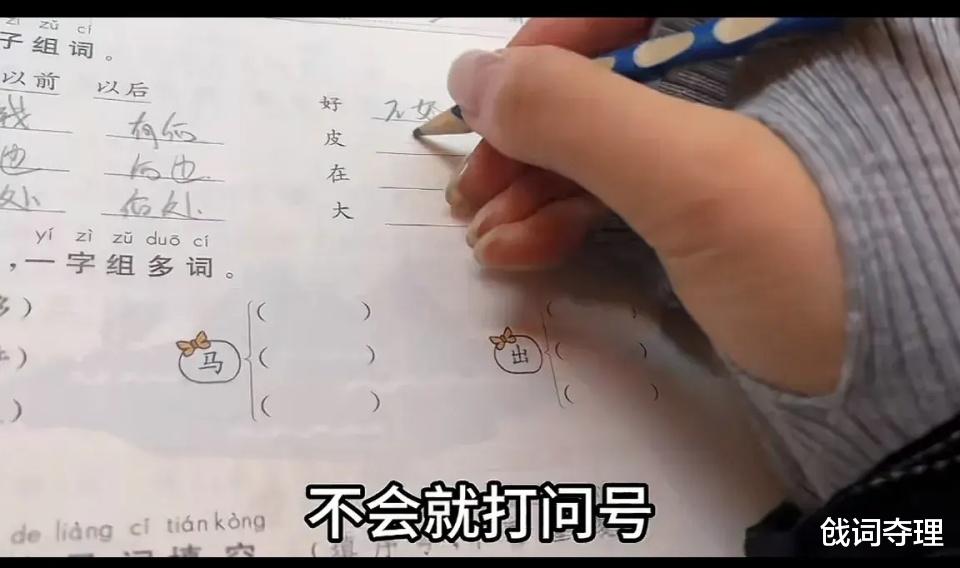 zì zǔ cí
子组词。
以前 以后
钱 有后 好
也 后也 皮
处 后处 在
大
yí zì zǔ duō cí
,一字组多词。
马 ( )
( )
( )
出 ( )
( )
( )
de liàng cí tián kòng
不会就打问号
戗词夺理